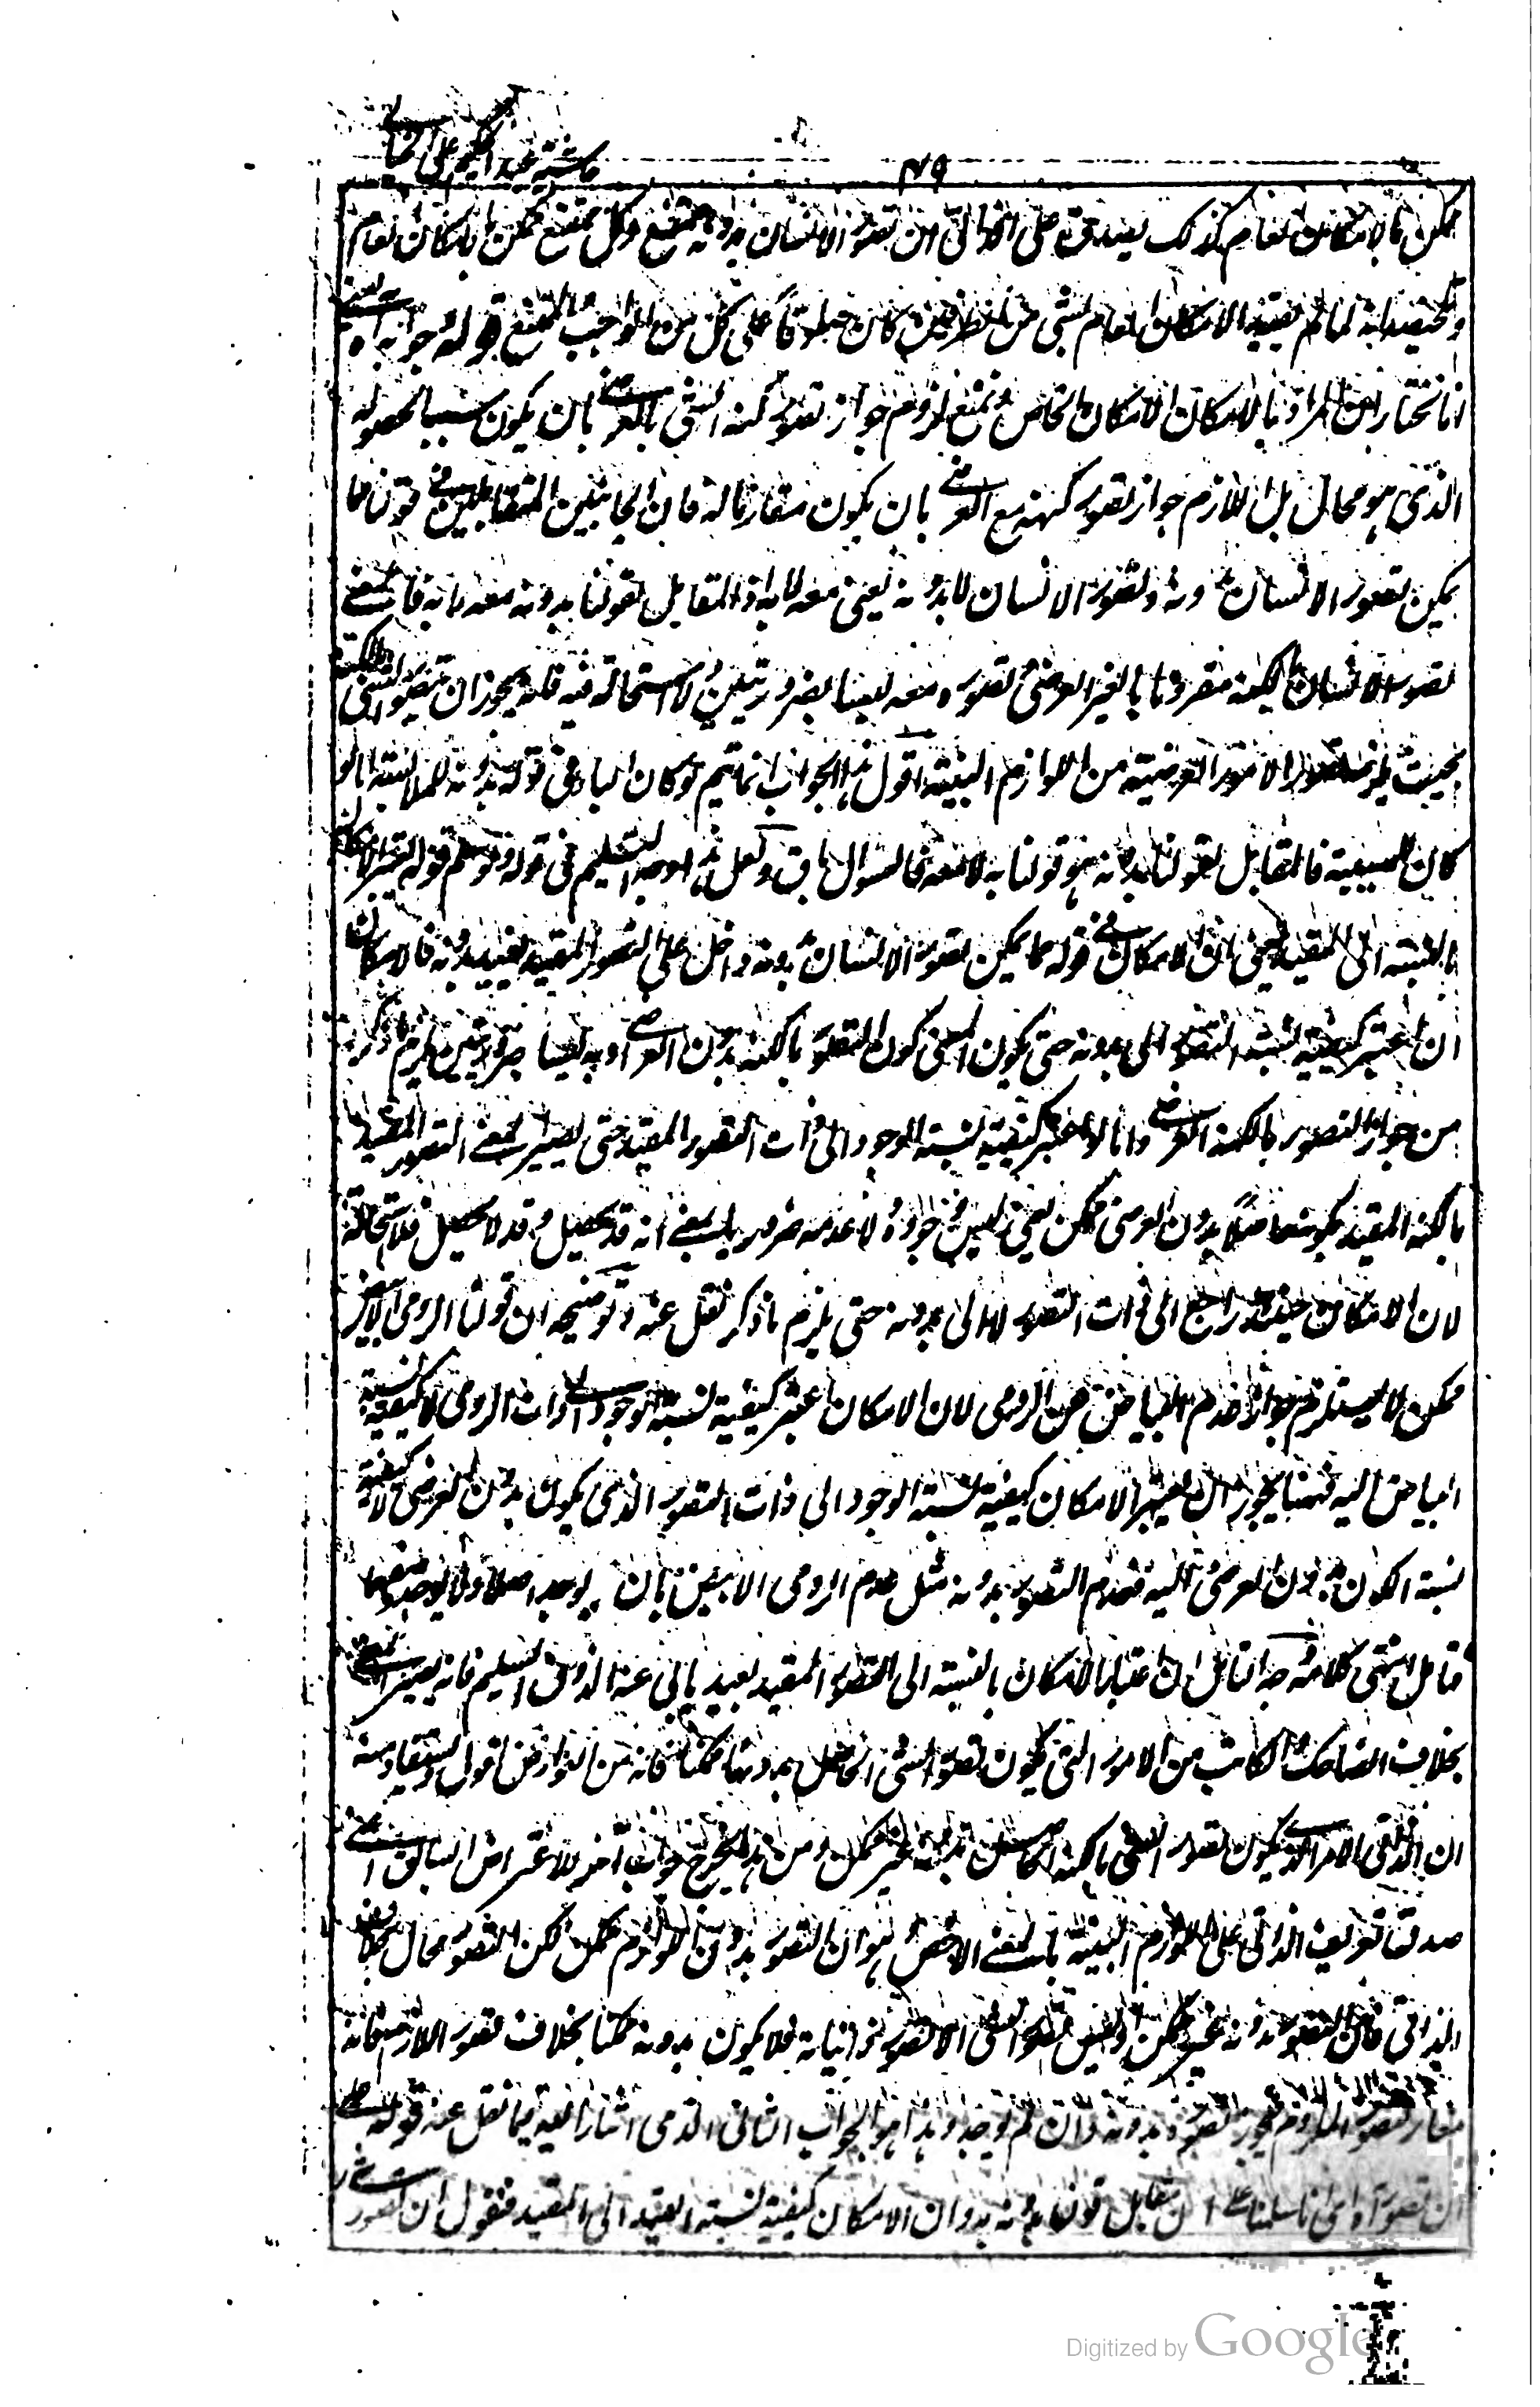 حاشية عبد الحكيم على الخيالي
٤٩
ممكن بالامكان العام كذلك يصدق على الذاتي ان تصور الانسان بدونه ممتنع وكل ممتنع ممكن بالامكان العام
انه لما لم يقيد الامكان العام بشئ من الطرفين كان صادقا على كل من الواجب والممتنع قوله جوابه اه يعنى
انا نختار ان المراد بالامكان الامكان الخاص ونمنع لزوم جواز تصور كنه الشئ بالعرضى بان يكون سببا لحصوله
الذى هو محال بل اللازم جواز تصور كنهه مع العرضى بان يكون مقارنا له فان الجانبين المتقابلين فى قولنا ما
يمكن تصور الانسان بدونه وتصور الانسان لا بدونه يعنى معه لا به اذ المقابل لقولنا بدونه معه لا به فالمعنى
تصور الانسان بالكنه مقرونا بالغير العرضى وتصوره معه ليسا بضروريتين ولا استحالة فيه فانه يجوز ان يتصور الشئ بالكنه
بحيث يلزمه تصور الامور العرضية من اللوازم البينة اقول هذا الجواب انما يتم لو كان الباء فى قوله بدونه للملابسة اما لو
كان للسببية فالمقابل لقولنا بدونه هو قولنا به لا معه فالسوال باق ولعل هذا وجه التسليم فى قوله ولو سلم قوله
بالنسبة الى المقيد يعنى ان الامكان فى قوله ما يمكن تصور الانسان بدونه داخل على التصور المقيد بقيد بدونه فالامكان
ان اعتبر كيفية لنسبة التصور الى بدونه حتى يكون المعنى كون التصور بالكنه بدون العرضى او به ليسا ضروريتين يلزم ما ذكر
من جواز التصور بالكنه العرضى واما لو اعتبر كيفية لنسبة الوجود الى ذات التصور المقيد حتى يصير المعنى التصور المقيد
بالكنه المقيد بكونه حاصلا بدون العرضى ممكن يعنى ليس وجوده ولا عدمه ضروريا بمعنى انه قد يحصل وقد لا يحصل فلا استحالة
لان الامكان حينئذ راجع الى ذات التصور لا الى بدونه حتى يلزم ما ذكر نقل عنه وتوضيحه ان قولنا الرومى الابيض
ممكن لا يستلزم جواز عدم البياض عن الرومى لان الامكان اعتبر كيفية لنسبة الوجود الى ذات الرومى لا كيفية نسبة
البياض اليه فههنا يجوز ان يعتبر الامكان كيفية نسبة الوجود الى ذات التصور الذى يكون بدون العرضى لا كيفية
نسبة الكون بدون العرضى اليه فعدم التصور بدونه مثل عدم الرومى الابيض بان لا يوجد اصلا
فتامل انتهى كلامه وجه التامل ان اعتبار الامكان بالنسبة الى التصور المقيد بعيد يابى عنه الذوق السليم فانه يصير المعنى
بخلاف الضاحك والكاتب من الامور التى يكون تصور الشئ الحاصل بدونها ممكنا فانه من العوارض اقول ويستفاد منه
ان الذاتى الامر الذى يكون تصور الشئ بالكنه الحاصل بدونه غير ممكن ومن هذا يخرج جواب آخر للاعتراض السابق اعنى
صدق تعريف الذاتى على اللوازم البينة بالمعنى الاخص وهو ان التصور بدون اللوازم ممكن لكن التصور محال بخلاف
الذاتى فان التصور بدونه غير ممكن اذ ليس تصور الشئ الا تصور ذاتياته فلا يكون بدونه ممكنا بخلاف تصور اللازم فانه
تصور الملزوم فيجوز تصوره بدونه وان لم يوجد وهذا هو الجواب الثانى الذى اشار اليه فيما نقل عنه قوله على
ان تصور اه اى انا سلمنا على ان مقابل قولنا بدونه به وان الامكان كيفية لنسبة القيد الى المقيد فنقول ان تصور
Digitized by Google